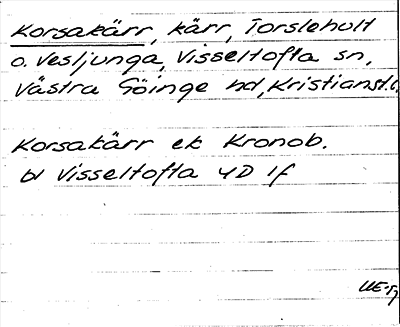 Korsakärr, kärr, Torsleholt
o. Vesljunga, Visseltofta sn,
Västra Göinge hd, Kristianst.l.
Korsakärr ek Kronob.
bl Visseltofta 4D 1f